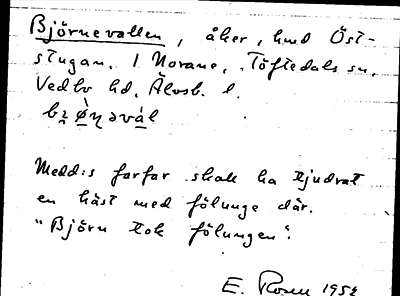 Björnevallen, åker, hmd Öst-
stugan. 1 Norane, Töftedals sn,
Vedbo hd, Älvsb. l.
bꭇø̀ṇəvál
Medd:s farfar skall ha tjudrat
en häst med fölunge där.
"Björn tok fölungen".
E. Rosen 1952